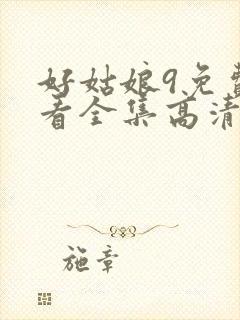 好姑娘9免费
看全集高清
施章